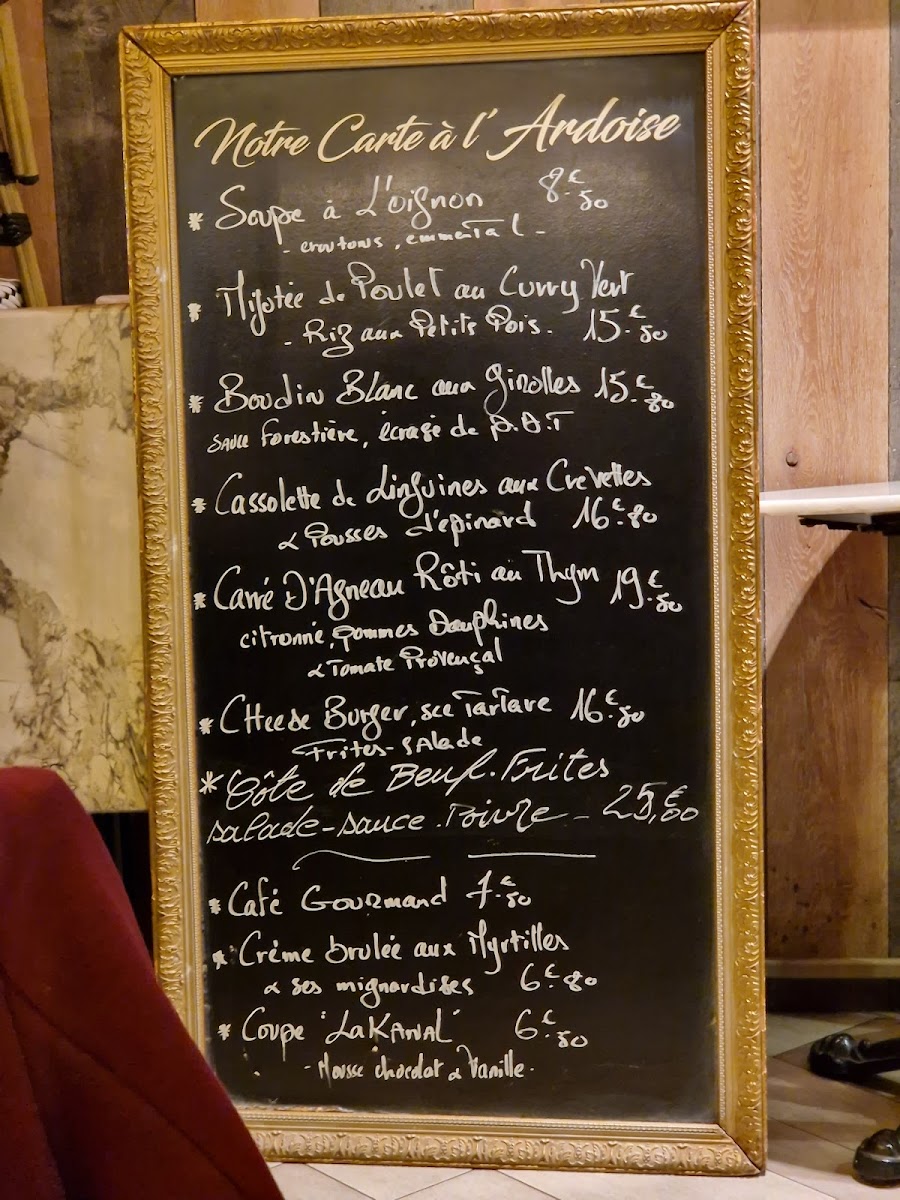 Notre Carte à l'Ardoise
* Soupe à L'oignon 8.€50
- croutons, emmental -
* Mijotée de Poulet au Curry Vert
- Riz aux Petits Pois. 15.€50
* Boudin Blanc aux Girolles 15.€80
Sauce Forestière, écrasé de P.D.T
* Cassolette de Linguines aux Crevettes
& Pousses d'épinard 16.€80
* Carré D'Agneau Rôti au Thym 19.€50
citronné, pommes Dauphines
& Tomate Provençal
* CHeese Burger, sce Tartare 16.€50
Frites - SAlade
* Côte de Beuf. Frites
salade - sauce. Poivre - 25,€00
* Café Gourmand 7.€50
* Crème brulée aux Myrtilles
& ses mignardises 6.€80
* Coupe "LaKanal" 6.€50
- Mousse chocolat & Vanille -